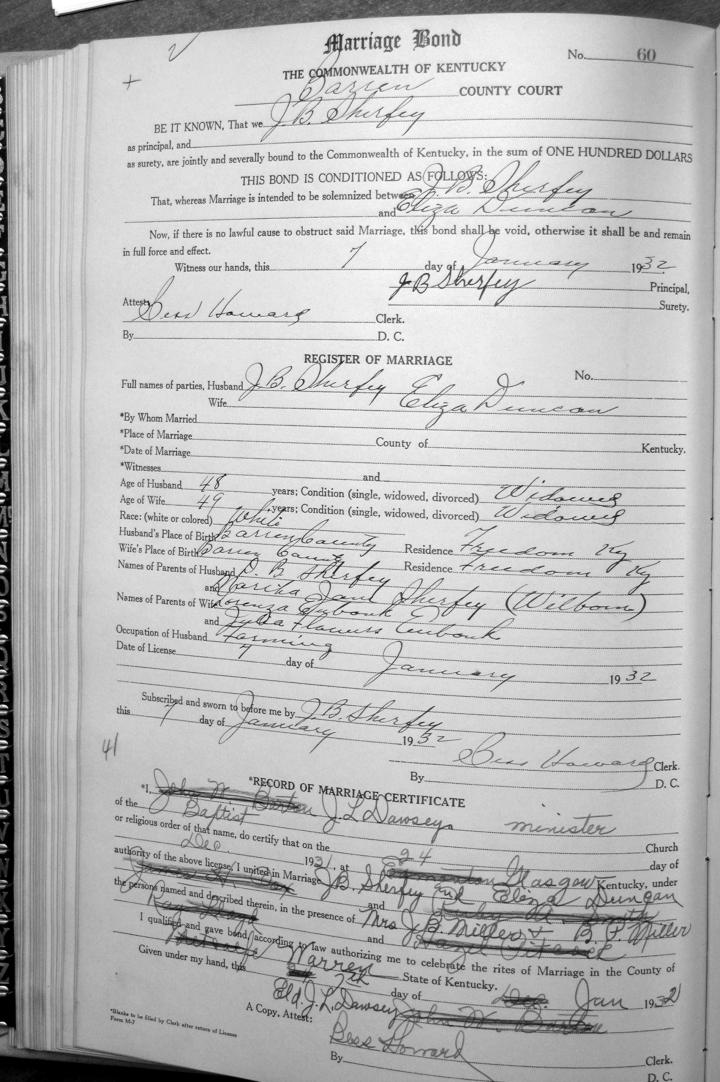 Marriage Bond
No. 60
THE COMMONWEALTH OF KENTUCKY
Barren COUNTY COURT
BE IT KNOWN, That we J. B. Sherfey
as principal, and
as surety, are jointly and severally bound to the Commonwealth of Kentucky, in the sum of ONE HUNDRED DOLLARS
THIS BOND IS CONDITIONED AS FOLLOWS:
That, whereas Marriage is intended to be solemnized between J. B. Sherfey
and Eliza Duncan
Now, if there is no lawful cause to obstruct said Marriage, this bond shall be void, otherwise it shall be and remain
in full force and effect.
Witness our hands, this 7 day of January 1932
J B Sherfey Principal,
Surety.
Attest: Bess Howard Clerk.
By D. C.
REGISTER OF MARRIAGE
No.
Full names of parties, Husband J. B. Sherfey
Wife Eliza Duncan
*By Whom Married
*Place of Marriage County of Kentucky.
*Date of Marriage
*Witnesses and
Age of Husband 48 years; Condition (single, widowed, divorced) Widowed
Age of Wife 49 years; Condition (single, widowed, divorced) Widowed
Race: (white or colored) White
Husband's Place of Birth Barren County Residence Freedom Ky
Wife's Place of Birth Barren County Residence Freedom Ky
Names of Parents of Husband B Sherfey
and Martha Jane Sherfey (Wilborn)
Names of Parents of Wife Lorenza Eubank
and Julia Flowers Eubank
Occupation of Husband Farming
Date of License 7 day of January 1932
Subscribed and sworn to before me by J. B. Sherfey
this 7 day of January 1932
41
Bess Howard Clerk.
By D. C.
*RECORD OF MARRIAGE CERTIFICATE
*I, John W. Barton J. L. Dawsey minister
of the Baptist Church
or religious order of that name, do certify that on the 24 day of
Dec. 1931, at Edmonton Glasgow Kentucky, under
authority of the above license, I united in Marriage J B. Sherfey and Eliza Duncan
the persons named and described therein, in the presence of Mrs J. B. Miller + B. F. Miller
and Hazel
I qualified and gave bond, according to law authorizing me to celebrate the rites of Marriage in the County of
Metcalfe Warren State of Kentucky.
Given under my hand, this 7th day of Dec. Jan 1932
Eld. J. L. Dawsey John W. Barton
A Copy, Attest:
Bess Howard Clerk.
By D. C.
*Blanks to be filled by Clerk after return of License
Form M-7